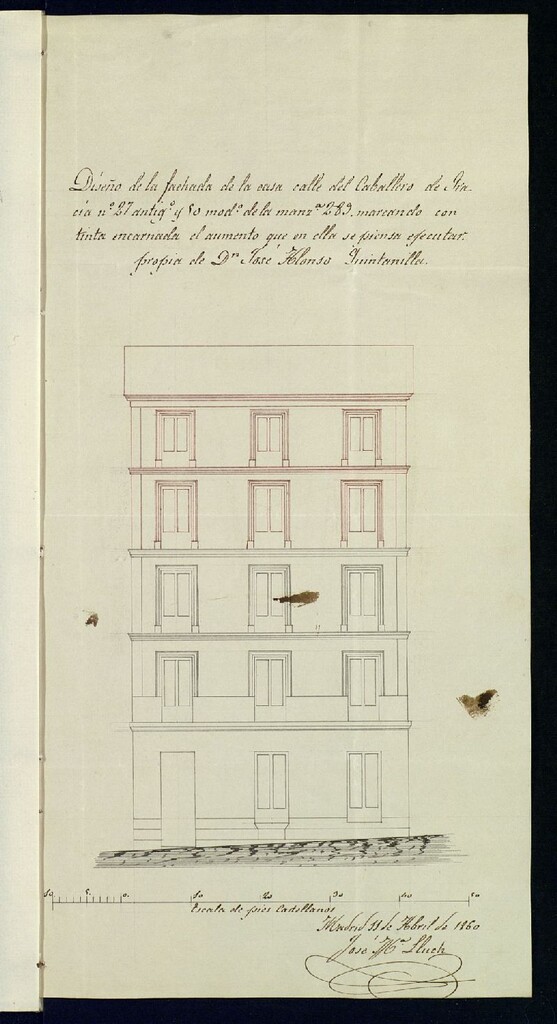 Diseño de la fachada de la casa calle del Caballero de Gra-
cia nº 27 antigº y 80 modº de la manzª 289, marcando con
tinta encarnada el aumento que en ella se piensa ejecutar.
propia de Dn José Alonso Quintanilla.
10 5. 0. 10 20 30 40 50
Escala de pies Castellanos
Madrid 11 de Abril de 1860
José Mª Lluch